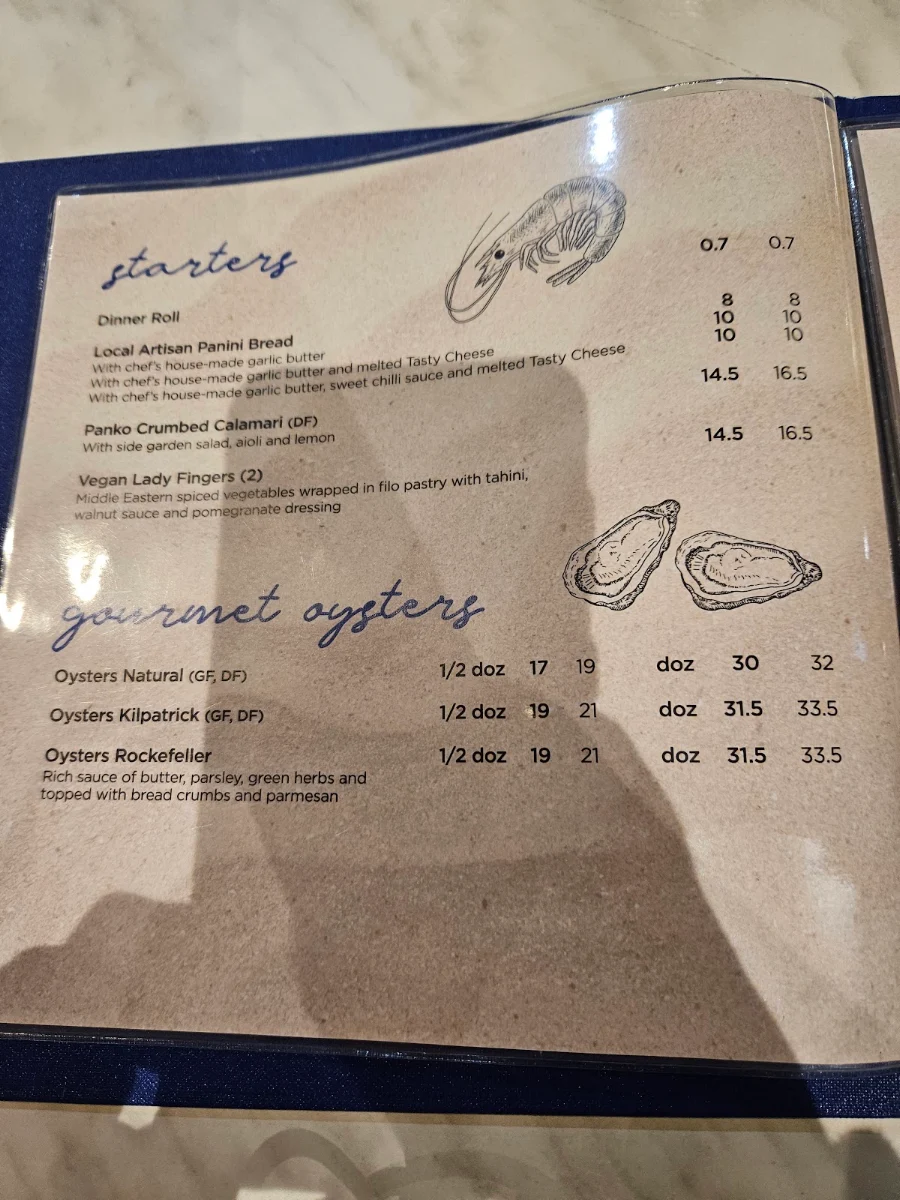 starters
Dinner Roll 0.7 0.7
Local Artisan Panini Bread
With chef's house-made garlic butter 8 8
With chef's house-made garlic butter and melted Tasty Cheese 10 10
With chef's house-made garlic butter, sweet chilli sauce and melted Tasty Cheese 10 10
Panko Crumbed Calamari (DF) 14.5 16.5
With side garden salad, aioli and lemon
Vegan Lady Fingers (2) 14.5 16.5
Middle Eastern spiced vegetables wrapped in filo pastry with tahini,
walnut sauce and pomegranate dressing
gourmet oysters
Oysters Natural (GF, DF) 1/2 doz 17 19 doz 30 32
Oysters Kilpatrick (GF, DF) 1/2 doz 19 21 doz 31.5 33.5
Oysters Rockefeller 1/2 doz 19 21 doz 31.5 33.5
Rich sauce of butter, parsley, green herbs and
topped with bread crumbs and parmesan